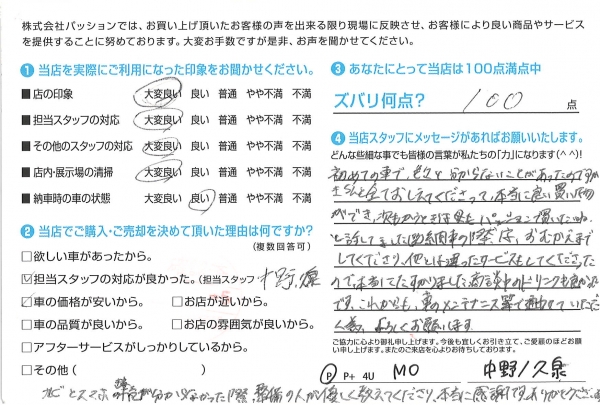 株式会社パッションでは、お買い上げ頂いたお客様の声を出来る限り現場に反映させ、お客様により良い商品やサービス
を提供することに努めております。大変お手数ですが是非、お声を聞かせてください。
❶ 当店を実際にご利用になった印象をお聞かせください。
■ 店の印象 大変良い 良い 普通 やや不満 不満
■ 担当スタッフの対応 大変良い 良い 普通 やや不満 不満
■ その他のスタッフの対応 大変良い 良い 普通 やや不満 不満
■ 店内・展示場の清掃 大変良い 良い 普通 やや不満 不満
■ 納車時の車の状態 大変良い 良い 普通 やや不満 不満
❷ 当店でご購入・ご売却を決めて頂いた理由は何ですか?
(複数回答可)
□欲しい車があったから。
☑担当スタッフの対応が良かった。(担当スタッフ
☑車の価格が安いから。 □お店が近いから。
□車の品質が良いから。 □お店の雰囲気が良いから。
□アフターサービスがしっかりしているから。
□その他 ( )
❸ あなたにとって当店は100点満点中
ズバリ何点? 100 点
❹ 当店スタッフにメッセージがあればお願いいたします。
どんな些細な事でも皆様の言葉が私たちの「力」になります(^ ^)!
初めての車で、色々と分からないことがあったのですが
さんと全ておしえてくださって、本当に良い買い物
ができ、
してください、他とは違ったサービスとしてくださった
ので本当にたすかりました。商談中のドリンクも良かった
です。これからも、車のメンテナンス等で
よろしくお願いします
ご協力に心より御礼申し上げます。今後も宜しくお引き立て、ご愛顧のほどお願
い申し上げます。またのご来店を心よりお待ちしております。
P P+ 4U MO 中野/久泉
ナビとスマホ 分からなかった際、整備の人が優しく教えてくださり、本当に感謝です。ありがとうございま